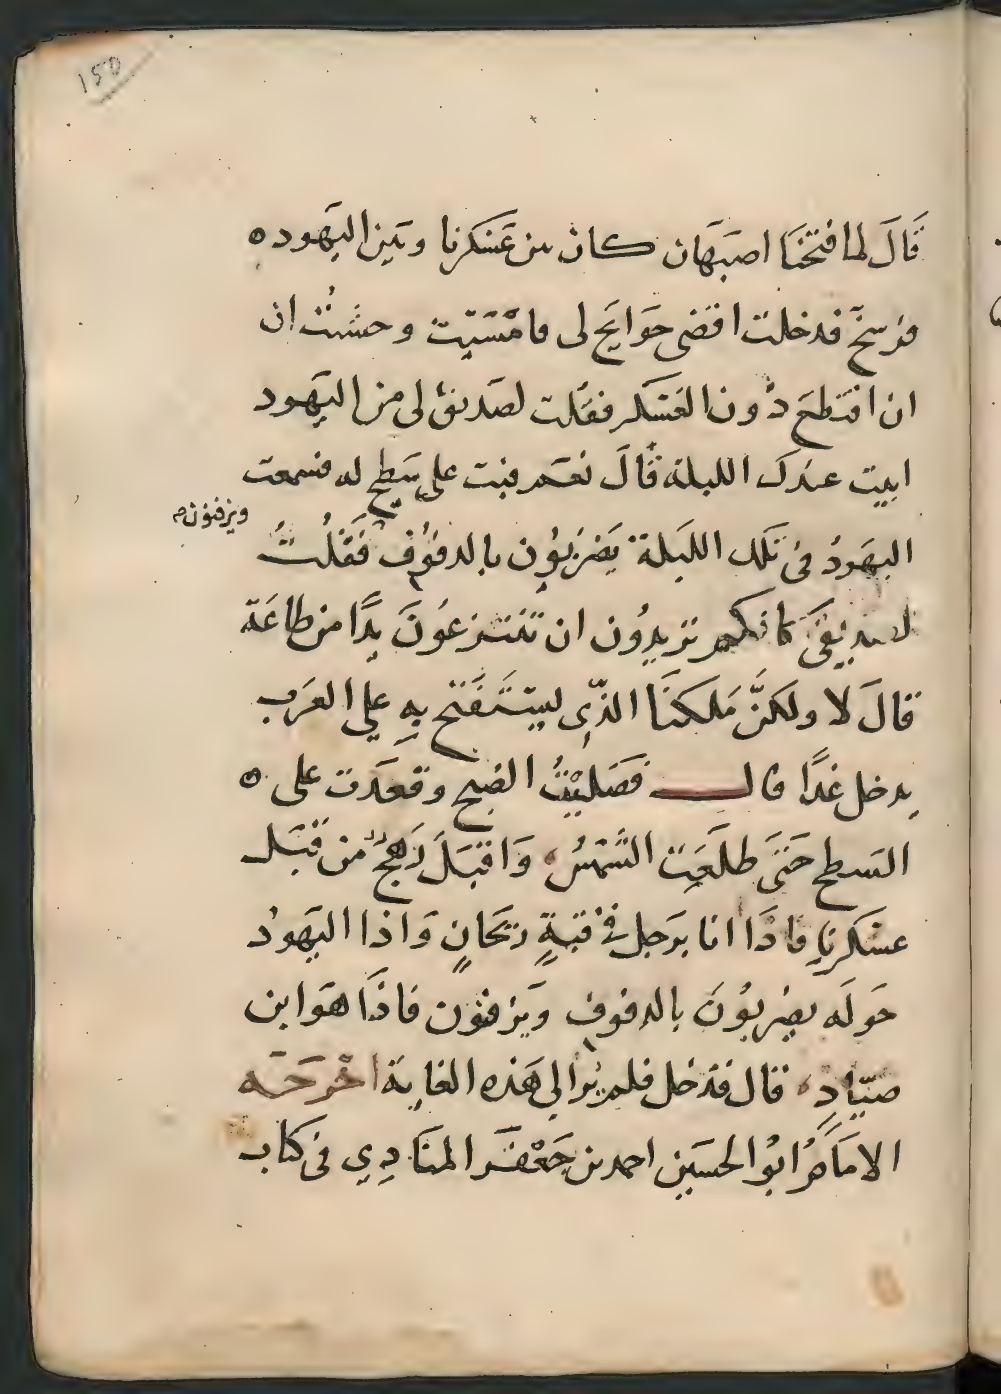 150
قَالَ لما افتتحنَا اصبَهَان كان بين عَسْكرنا وبَين اليَهود ه
فرسخ فدخلت اقضى حَوَايَج لى فامْسَيت وخشيتُ ان
ان اقتطعَ دُون العَسْكر فقلت لصَديق لى من اليَهود
ابيت عندك الليلة قَالَ نعَم فبت على سَطح له فسمعت
اليهَودُ فى تلك الليَلة يَضربُون بالدفُوف فَقُلتُ
ويزفنون
لصديقى كانكم تريدُون ان تنتزعُونَ يدًا من طاعَة
قالَ لا ولكنَّ مَلكنَا الذّى ليسْتَفْتح بِه على العَرَب
يدخل غدًا قال فصَليْتُ الصُبح وقعَدت على ه
السَطح حَتىَ طلَعَت الشَمْسُ ه وَاقبَلَ رَهجُ من قبَل
عسْكرنا فاذَا انا برَجل فى قبةٍ ريَحانٍ وَاذا اليَهودُ
حَولَه يضربُونَ بالدفوف ويَزفنون فاذَا هوَ ابن
صَيّادِ ه قال فدخل فلم يُر الى هَذه الغاية اخْرَجَه
الامَامُ ابُو الحسَين احمد بن جَعْفَر المنَادِي فى كتاب